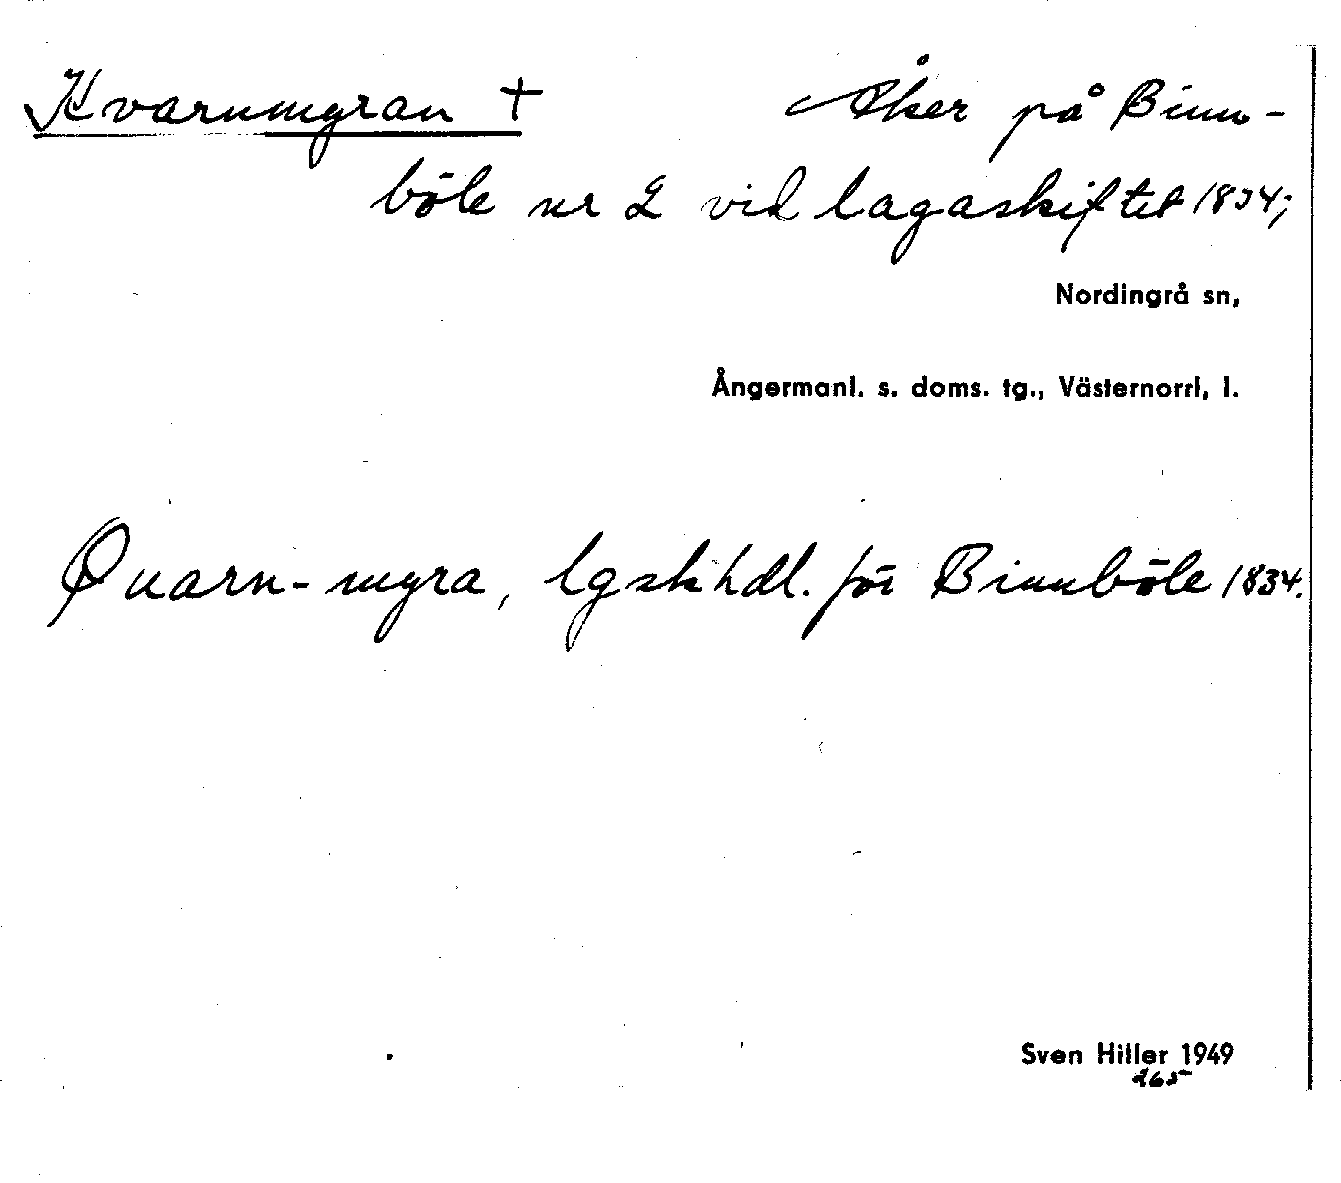 Kvarnmyran † Åker på Binn-
böle nr 2 vid lagaskiftet 1834;
Nordingrå sn,
Ångermanl. s. doms. tg., Västernorrl, l.
Quarn-myra, lgskhdl. för Binnböle 1834.
Sven Hiller 1949
265